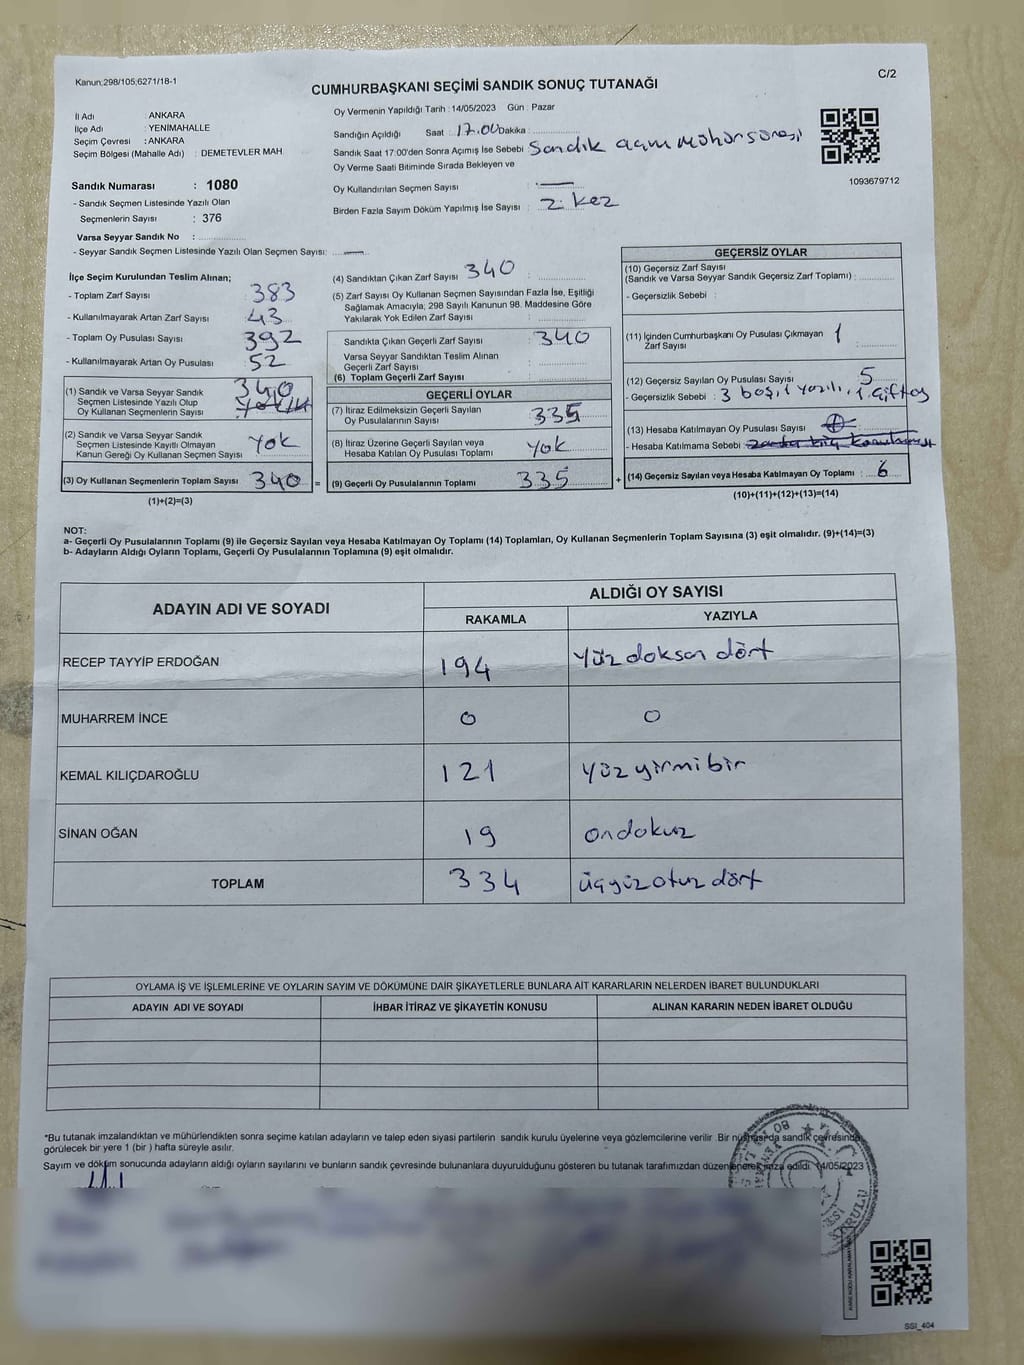 Kanun;298/105;6271/18-1
C/2
CUMHURBAŞKANI SEÇİMİ SANDIK SONUÇ TUTANAĞI
İl Adı : ANKARA
İlçe Adı : YENİMAHALLE
Seçim Çevresi : ANKARA
Seçim Bölgesi (Mahalle Adı) : DEMETEVLER MAH
Oy Vermenin Yapıldığı Tarih : 14/05/2023 Gün : Pazar
Sandığın Açıldığı Saat : 17.00 Dakika :
Sandık Saat 17:00'den Sonra Açımış İse Sebebi Sandık açım mühür süresi
Oy Verme Saati Bitiminde Sırada Bekleyen ve
Oy Kullandırılan Seçmen Sayısı : —
Birden Fazla Sayım Döküm Yapılmış İse Sayısı : 2. kez
1093679712
Sandık Numarası : 1080
- Sandık Seçmen Listesinde Yazılı Olan
Seçmenlerin Sayısı : 376
Varsa Seyyar Sandık No :
- Seyyar Sandık Seçmen Listesinde Yazılı Olan Seçmen Sayısı: —
İlçe Seçim Kurulundan Teslim Alınan;
- Toplam Zarf Sayısı 383
- Kullanılmayarak Artan Zarf Sayısı 43
- Toplam Oy Pusulası Sayısı 392
- Kullanılmayarak Artan Oy Pusulası 52
(1) Sandık ve Varsa Seyyar Sandık
Seçmen Listesinde Yazılı Olup
Oy Kullanan Seçmenlerin Sayısı 340
(2) Sandık ve Varsa Seyyar Sandık
Seçmen Listesinde Kayıtlı Olmayan
Kanun Gereği Oy Kullanan Seçmen Sayısı Yok
(3) Oy Kullanan Seçmenlerin Toplam Sayısı 340 =
(1)+(2)=(3)
(4) Sandıktan Çıkan Zarf Sayısı 340
(5) Zarf Sayısı Oy Kullanan Seçmen Sayısından Fazla İse, Eşitliği
Sağlamak Amacıyla; 298 Sayılı Kanunun 98. Maddesine Göre
Yakılarak Yok Edilen Zarf Sayısı :
Sandıkta Çıkan Geçerli Zarf Sayısı : 340
Varsa Seyyar Sandıktan Teslim Alınan
Geçerli Zarf Sayısı :
(6) Toplam Geçerli Zarf Sayısı :
GEÇERLİ OYLAR
(7) İtiraz Edilmeksizin Geçerli Sayılan
Oy Pusulalarının Sayısı 335
(8) İtiraz Üzerine Geçerli Sayılan veya
Hesaba Katılan Oy Pusulası Toplamı Yok
(9) Geçerli Oy Pusulalarının Toplamı 335 +
GEÇERSİZ OYLAR
(10) Geçersiz Zarf Sayısı
(Sandık ve Varsa Seyyar Sandık Geçersiz Zarf Toplamı) :
- Geçersizlik Sebebi :
(11) İçinden Cumhurbaşkanı Oy Pusulası Çıkmayan
Zarf Sayısı : 1
(12) Geçersiz Sayılan Oy Pusulası Sayısı : 5
- Geçersizlik Sebebi : 3 boş, 1 yazılı, 1 çift oy
(13) Hesaba Katılmayan Oy Pusulası Sayısı :
- Hesaba Katılmama Sebebi
(14) Geçersiz Sayılan veya Hesaba Katılmayan Oy Toplamı : 6
(10)+(11)+(12)+(13)=(14)
NOT:
a- Geçerli Oy Pusulalarının Toplamı (9) ile Geçersiz Sayılan veya Hesaba Katılmayan Oy Toplamı (14) Toplamları, Oy Kullanan Seçmenlerin Toplam Sayısına (3) eşit olmalıdır. (9)+(14)=(3)
b- Adayların Aldığı Oyların Toplamı, Geçerli Oy Pusulalarının Toplamına (9) eşit olmalıdır.
ADAYIN ADI VE SOYADI
ALDIĞI OY SAYISI
RAKAMLA YAZIYLA
RECEP TAYYİP ERDOĞAN 194 yüz doksan dört
MUHARREM İNCE 0 0
KEMAL KILIÇDAROĞLU 121 yüz yirmi bir
SİNAN OĞAN 19 ondokuz
TOPLAM 334 üçyüz otuz dört
OYLAMA İŞ VE İŞLEMLERİNE VE OYLARIN SAYIM VE DÖKÜMÜNE DAİR ŞİKAYETLERLE BUNLARA AİT KARARLARIN NELERDEN İBARET BULUNDUKLARI
ADAYIN ADI VE SOYADI İHBAR İTİRAZ VE ŞİKAYETİN KONUSU ALINAN KARARIN NEDEN İBARET OLDUĞU
*Bu tutanak imzalandıktan ve mühürlendikten sonra seçime katılan adayların ve talep eden siyasi partilerin sandık kurulu üyelerine veya gözlemcilerine verilir. Bir nüshası da sandık çevresinde
görülecek bir yere 1 (bir ) hafta süreyle asılır.
Sayım ve döküm sonucunda adayların aldığı oyların sayılarını ve bunların sandık çevresinde bulunanlara duyurulduğunu gösteren bu tutanak tarafımızdan düzenlenerek imza edildi. 14/05/2023
SSİ_404